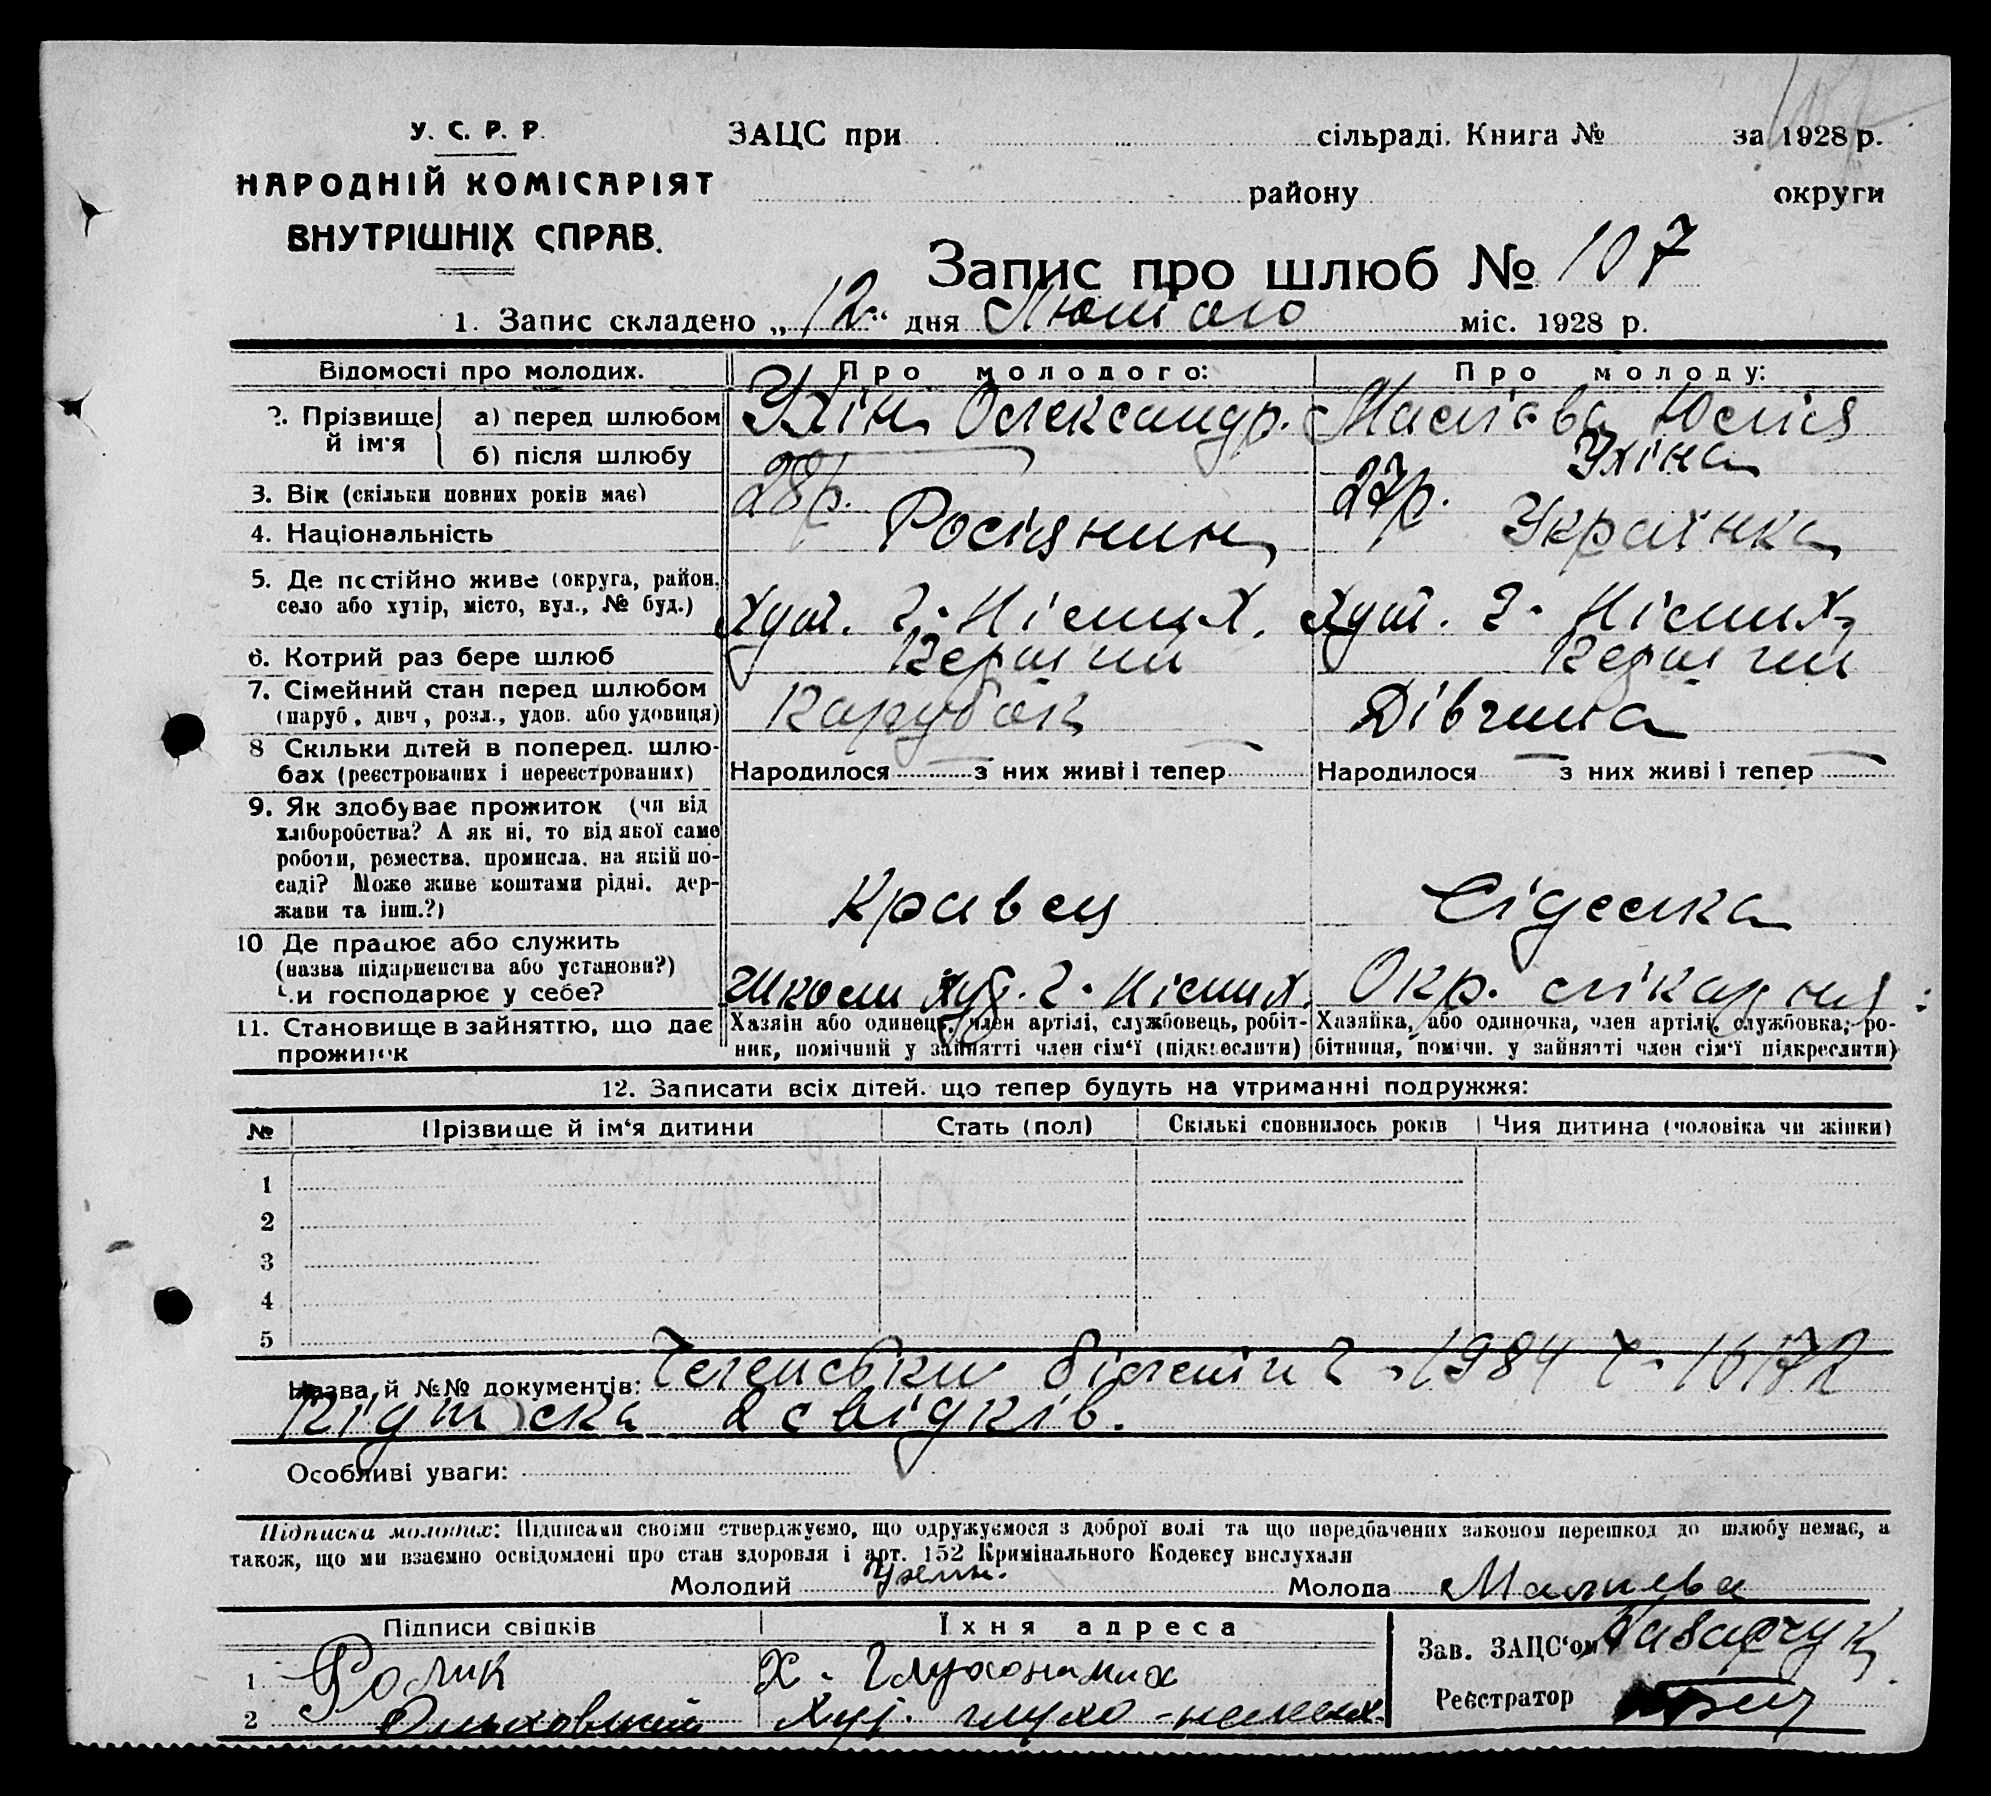 У. С. Р. Р.
НАРОДНІЙ КОМІСАРІЯТ
ВНУТРІШНІХ СПРАВ.
ЗАЦС при сільраді. Книга № за 1928 р.
району округи
Запис про шлюб № 107
1. Запис складено „12“ дня Лютого міс. 1928 р.
Відомості про молодих. Про молодого: Про молоду:
2. Прізвище й ім'я
а) перед шлюбом Улін Олександр. Маслієва Юлія
б) після шлюбу Уліна
3. Вік (скільки повних років має) 28 р. 27 р.
4. Національність Росіянин Українка
5. Де постійно живе (округа, район, село або хутір, місто, вул., № буд.) Хут. Г-Німих. Хут. Г-Німих
6. Котрий раз бере шлюб Перший Перший
7. Сімейний стан перед шлюбом (паруб, дівч, розл., удов. або удовиця) Парубок Дівчина
8 Скільки дітей в поперед. шлюбах (реєстрованих і нереєстрованих) Народилося — з них живі і тепер — Народилося — з них живі і тепер —
9. Як здобуває прожиток (чи від хліборобства? А як ні, то від якої саме роботи, ремества, промисла, на якій посаді? Може живе коштами рідні, держави та інш.?) Кравец Сіделка
10 Де працює або служить (назва підприємства або установи?) Чи господарює у себе? Школи Хут. Г-Німих. Окр. лікарня
11. Становище в зайняттю, що дає прожиток
Хазяїн або одинець, член артілі, службовець, робітник, помічний у зайнятті член сім‘ї (підкреслити)
Хазяйка, або одиночка, член артілі, службовка, робітниця, помічн. у зайнятті член сім‘ї підкреслити)
12. Записати всіх дітей, що тепер будуть на утриманні подружжя:
№ Прізвище й ім‘я дитини Стать (пол) Скількі сповнилось років Чия дитина (чоловіка чи жінки)
1
2
3
4
5
Назва й №№ документів: Членські білети 1984
Підписка 2 свідків.
Особливі уваги:
Підписка молодих: Підписами своїми стверджуємо, що одружуємося з доброї волі та що передбачених законом перешкод до шлюбу немає, а
також, що ми взаємно освідомлені про стан здоровля і арт. 152 Кримінального Кодексу вислухали
Молодий Молода
Підписи свідків Їхня адреса Зав. ЗАЦС‘ом
1 Ролик Х. Глухонимих
2 Хут. глухо-немих. Реєстратор